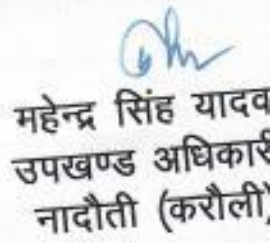 महेन्द्र सिंह यादव
उपखण्ड अधिकारी
नादौती (करौली)